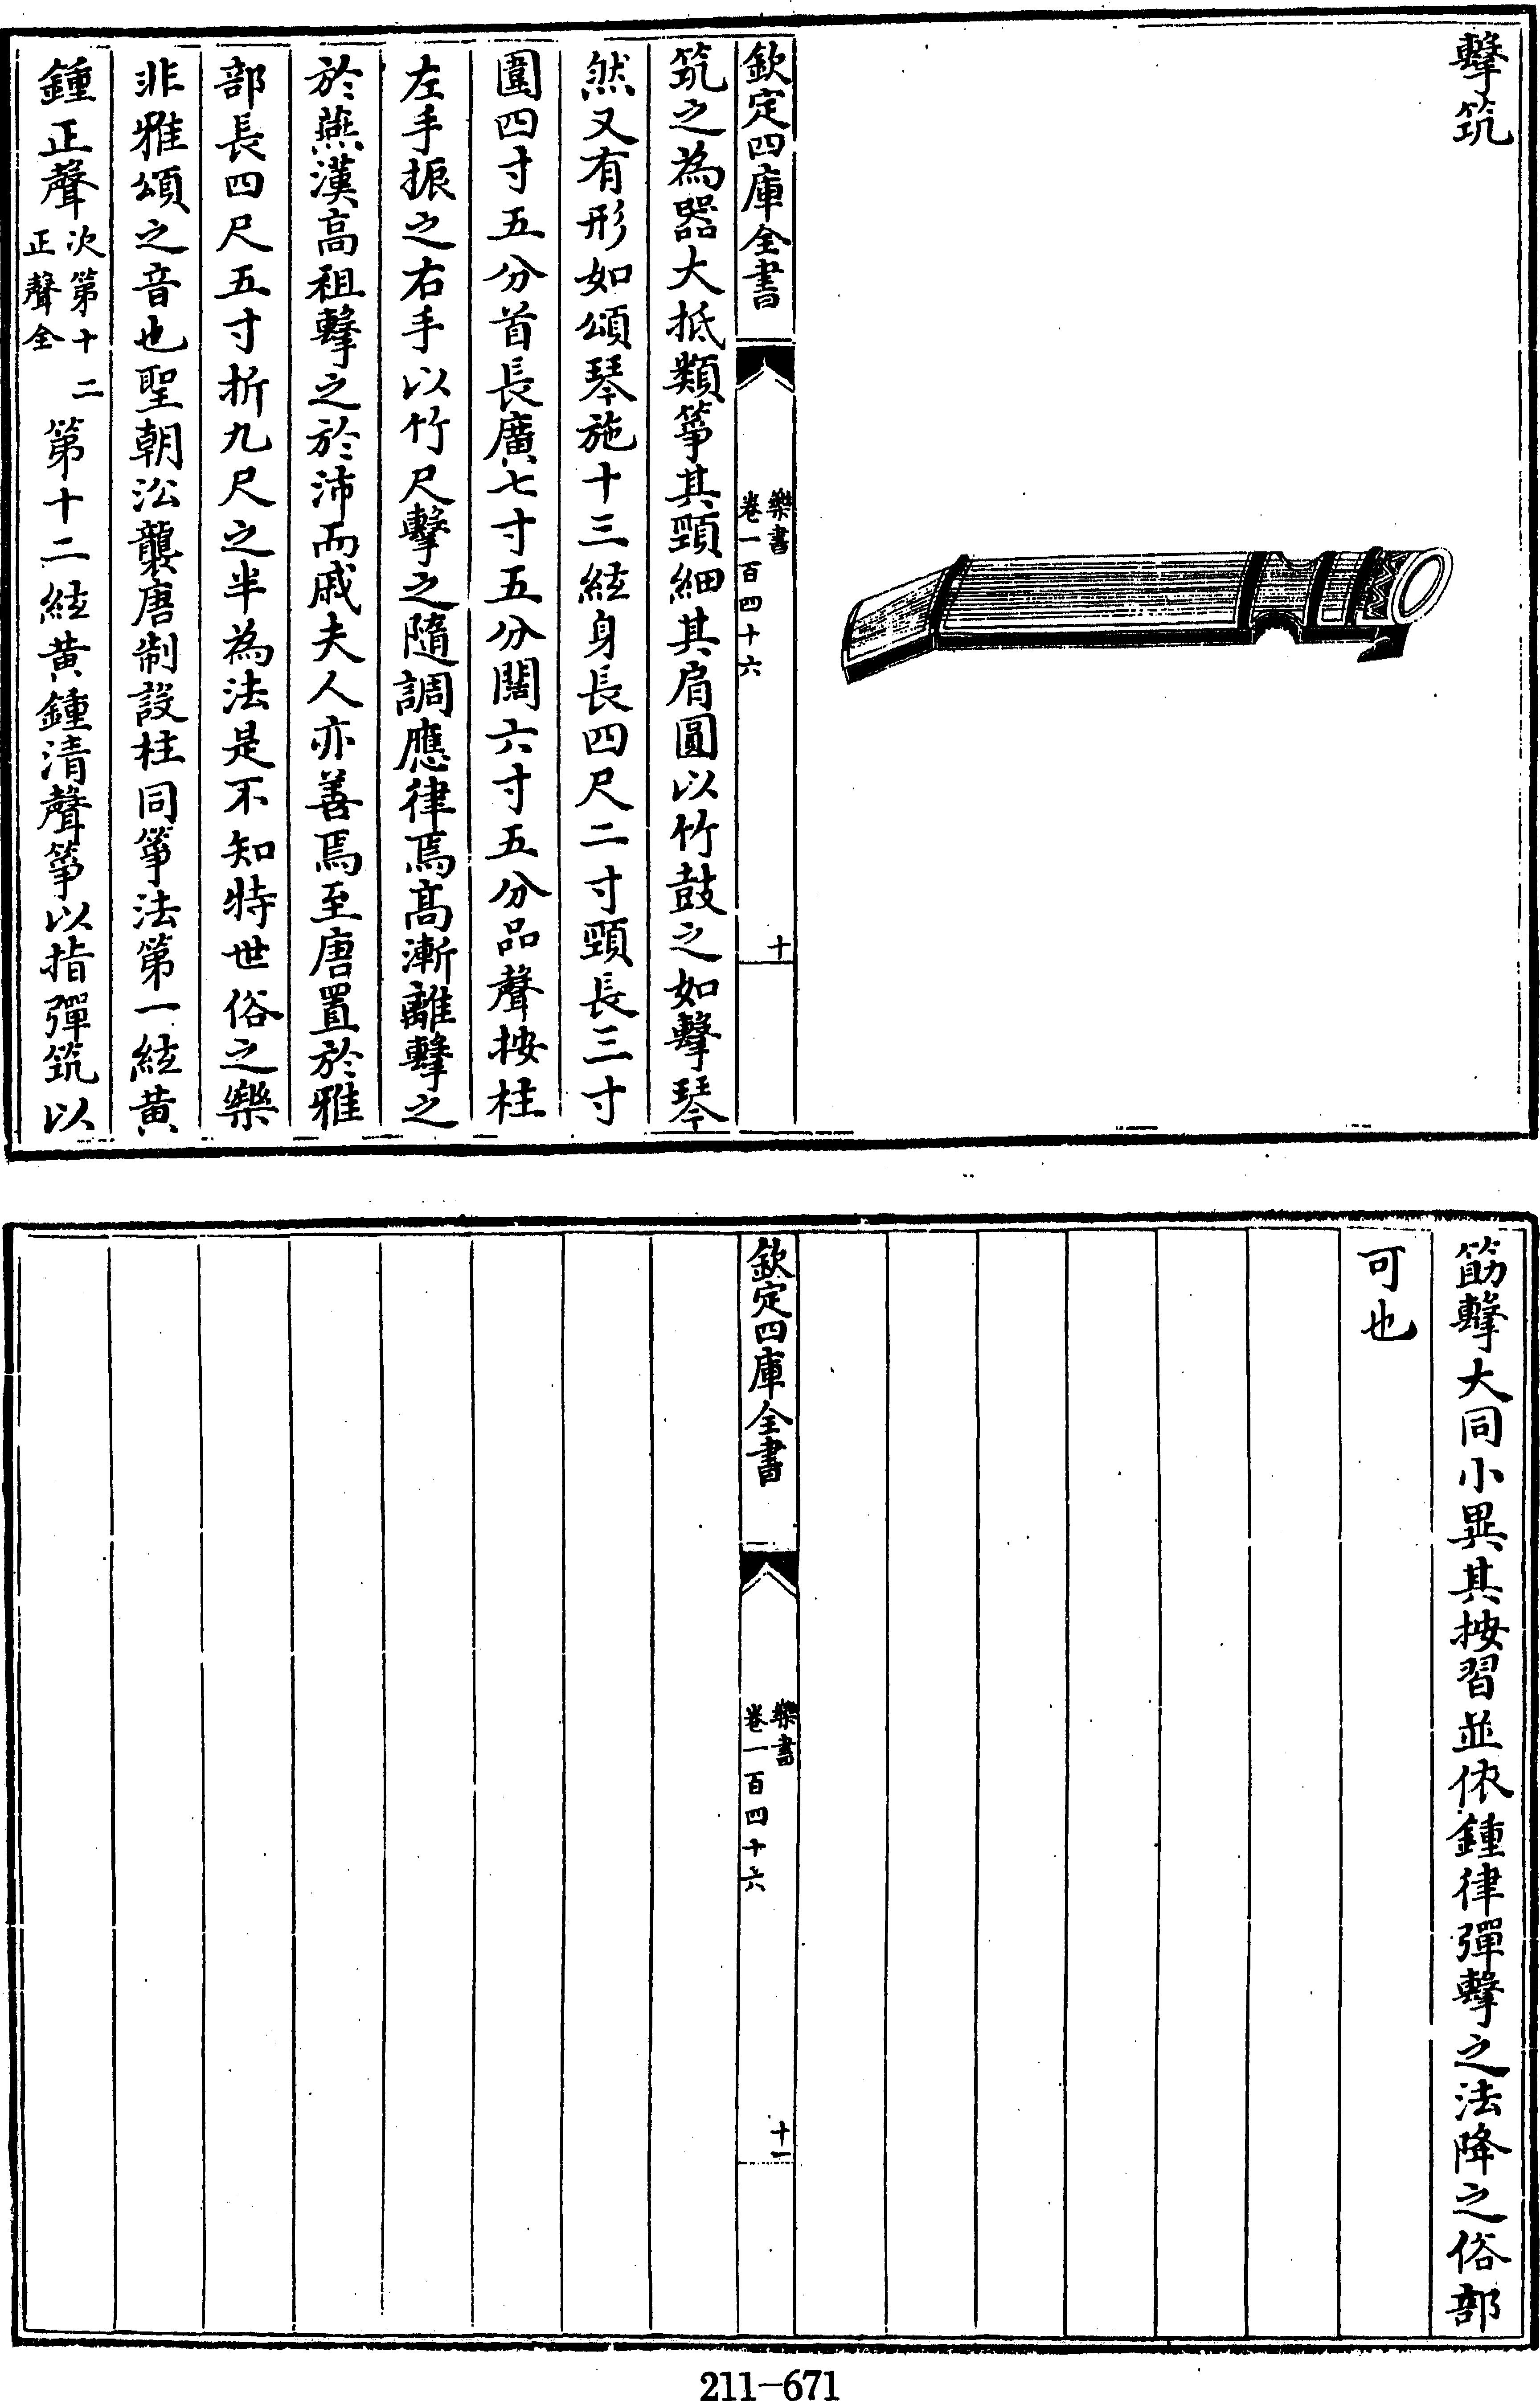 擊筑
欽定四庫全書
樂書
卷一百四十六
十
筑之為器大抵類箏其頸細其肩圓以竹鼓之如擊琴
然又有形如頌琴施十三絃身長四尺二寸頸長三寸
圍四寸五分首長廣七寸五分闊六寸五分品聲按柱
左手振之右手以竹尺擊之隨調應律焉高漸離擊之
於燕漢高祖擊之於沛而戚夫人亦善焉至唐置於雅
部長四尺五寸折九尺之半為法是不知特世俗之樂
非雅頌之音也聖朝㳂襲唐制設柱同箏法第一絃黃
鍾正聲次第十二正聲全第十二絃黃鍾清聲箏以指彈筑以
筯擊大同小異其按習並依鍾律彈擊之法降之俗部
可也
欽定四庫全書
樂書
卷一百四十六
十一
211-671